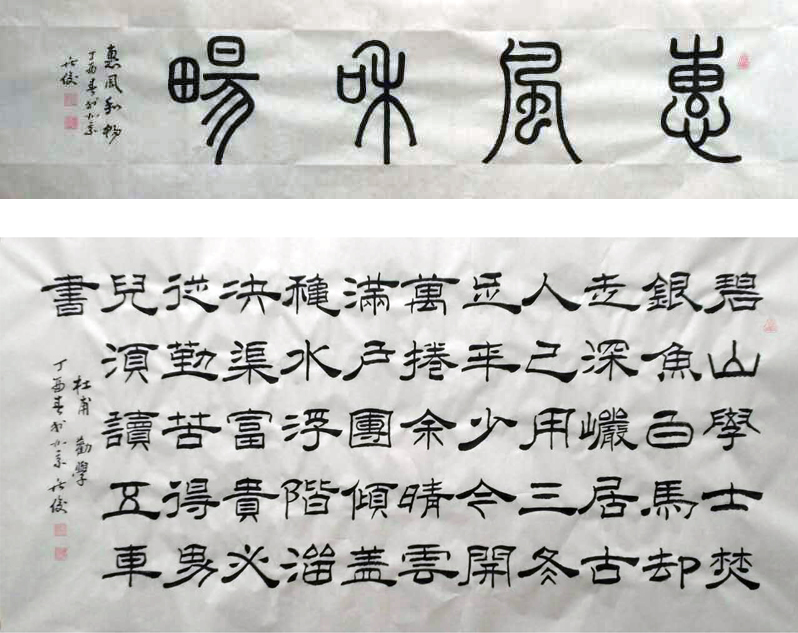 惠風和暢
惠風和暢
丁酉春於北京
碧山學士焚
銀魚白馬却
走深巖居古
人已用三冬
足年少今開
萬捲余晴雲
滿户團傾蓋
穐水浮階溜
決渠富貴必
從勤苦得男
兒須讀五車
書
杜甫 勸學
丁酉春於北京